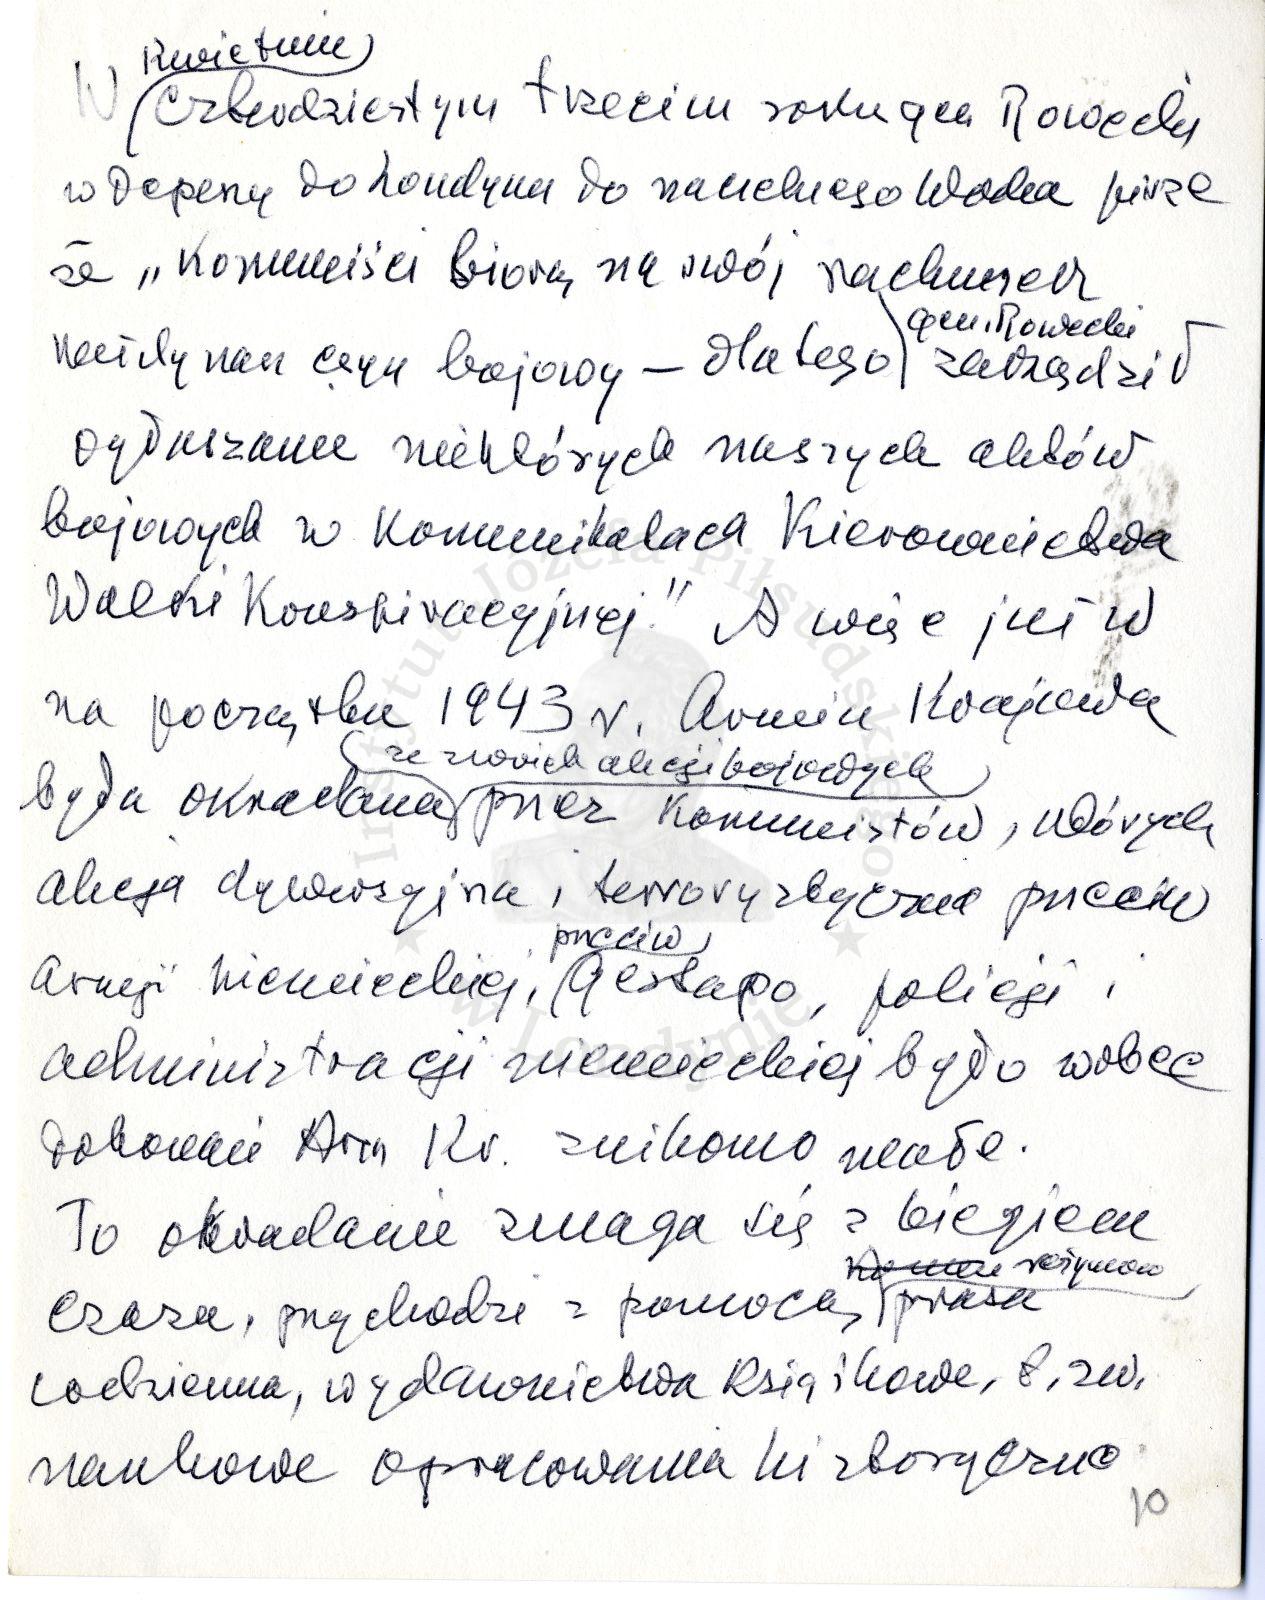 kwietniu
W czterdziestym trzecim roku gen Rowecki
w depeszy do Londynu do naczelnego Wodza pisze
że „Komuniści biorą na swój rachunek
każdy nasz czyn bojowy – dlatego zarządził
gen. Rowecki
ogłaszanie niektórych naszych aktów
bojowych w Komunikatach Kierownictwa
Walki Konspiracyjnej." A więc już w
na początku 1943 r. Armia Krajowa
ze swoich akcji bojowych
była okradana przez Komunistów, których
akcja dywersyjna i terrorystyczna przeciw
przeciw
armji niemieckiej, Gestapo, policji i
administracji niemieckiej było wobec
dokonań Arm Kr. znikomo małe.
To okradanie zmaga się z biegiem
reżymowa
czasu, przychodzi z pomocą prasa
codzienna, wydawnictwa książkowe, t.zw.
naukowe opracowania historyczne
10
Instytut Józefa Piłsudskiego
w Londynie